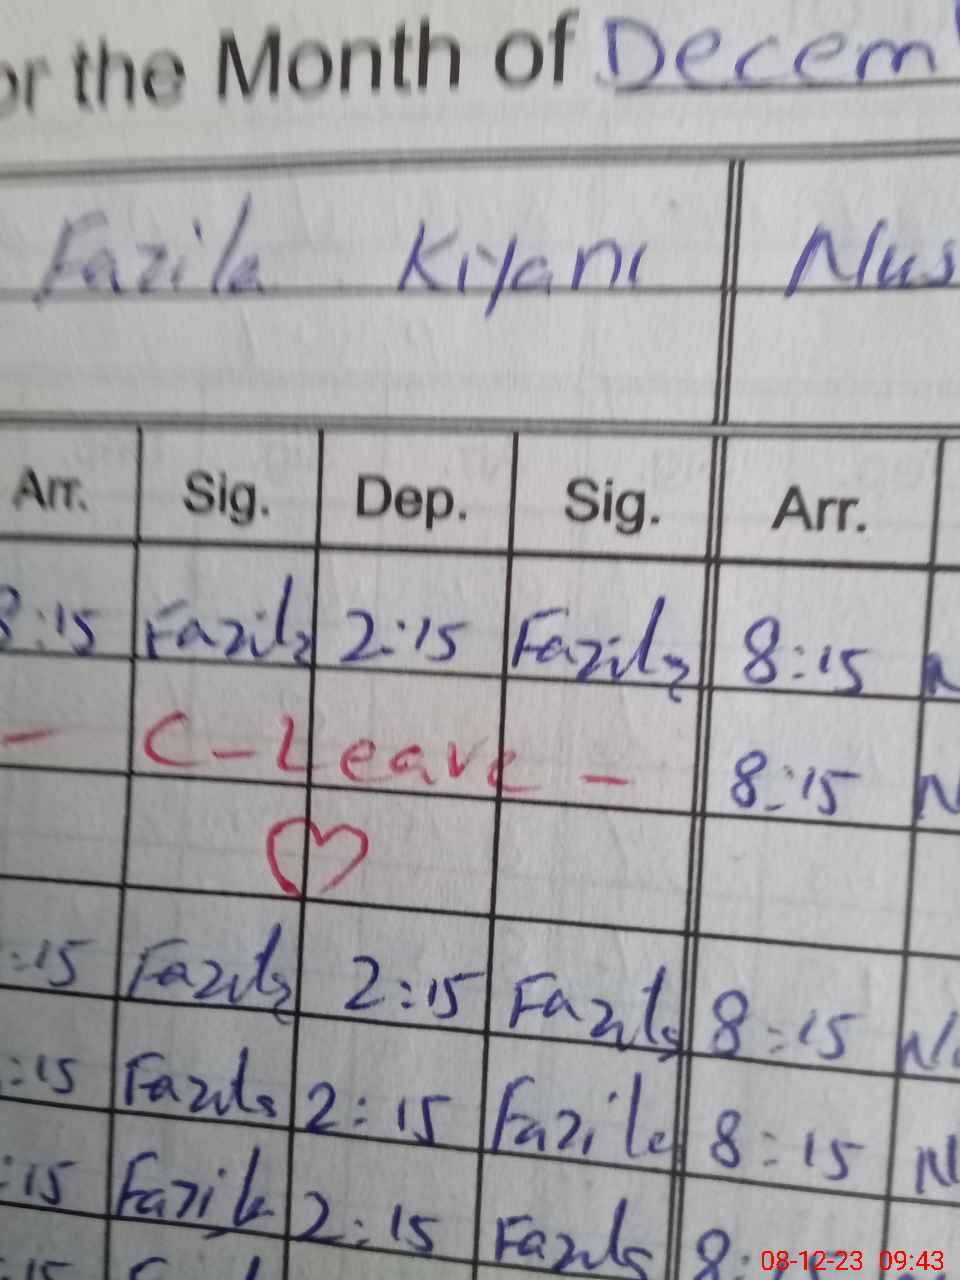 for the Month of Decem
Fazila Kiyani Nus
Arr. Sig. Dep. Sig. Arr.
8:15 Fazila 2:15 Fazila 8:15 N
- C-Leave - 8:15 N
:15 Fazila 2:15 Fazila 8:15 Nu
:15 Fazila 2:15 Fazila 8:15 N
:15 Fazila 2:15 Fazila 8:
:15
08-12-23 09:43